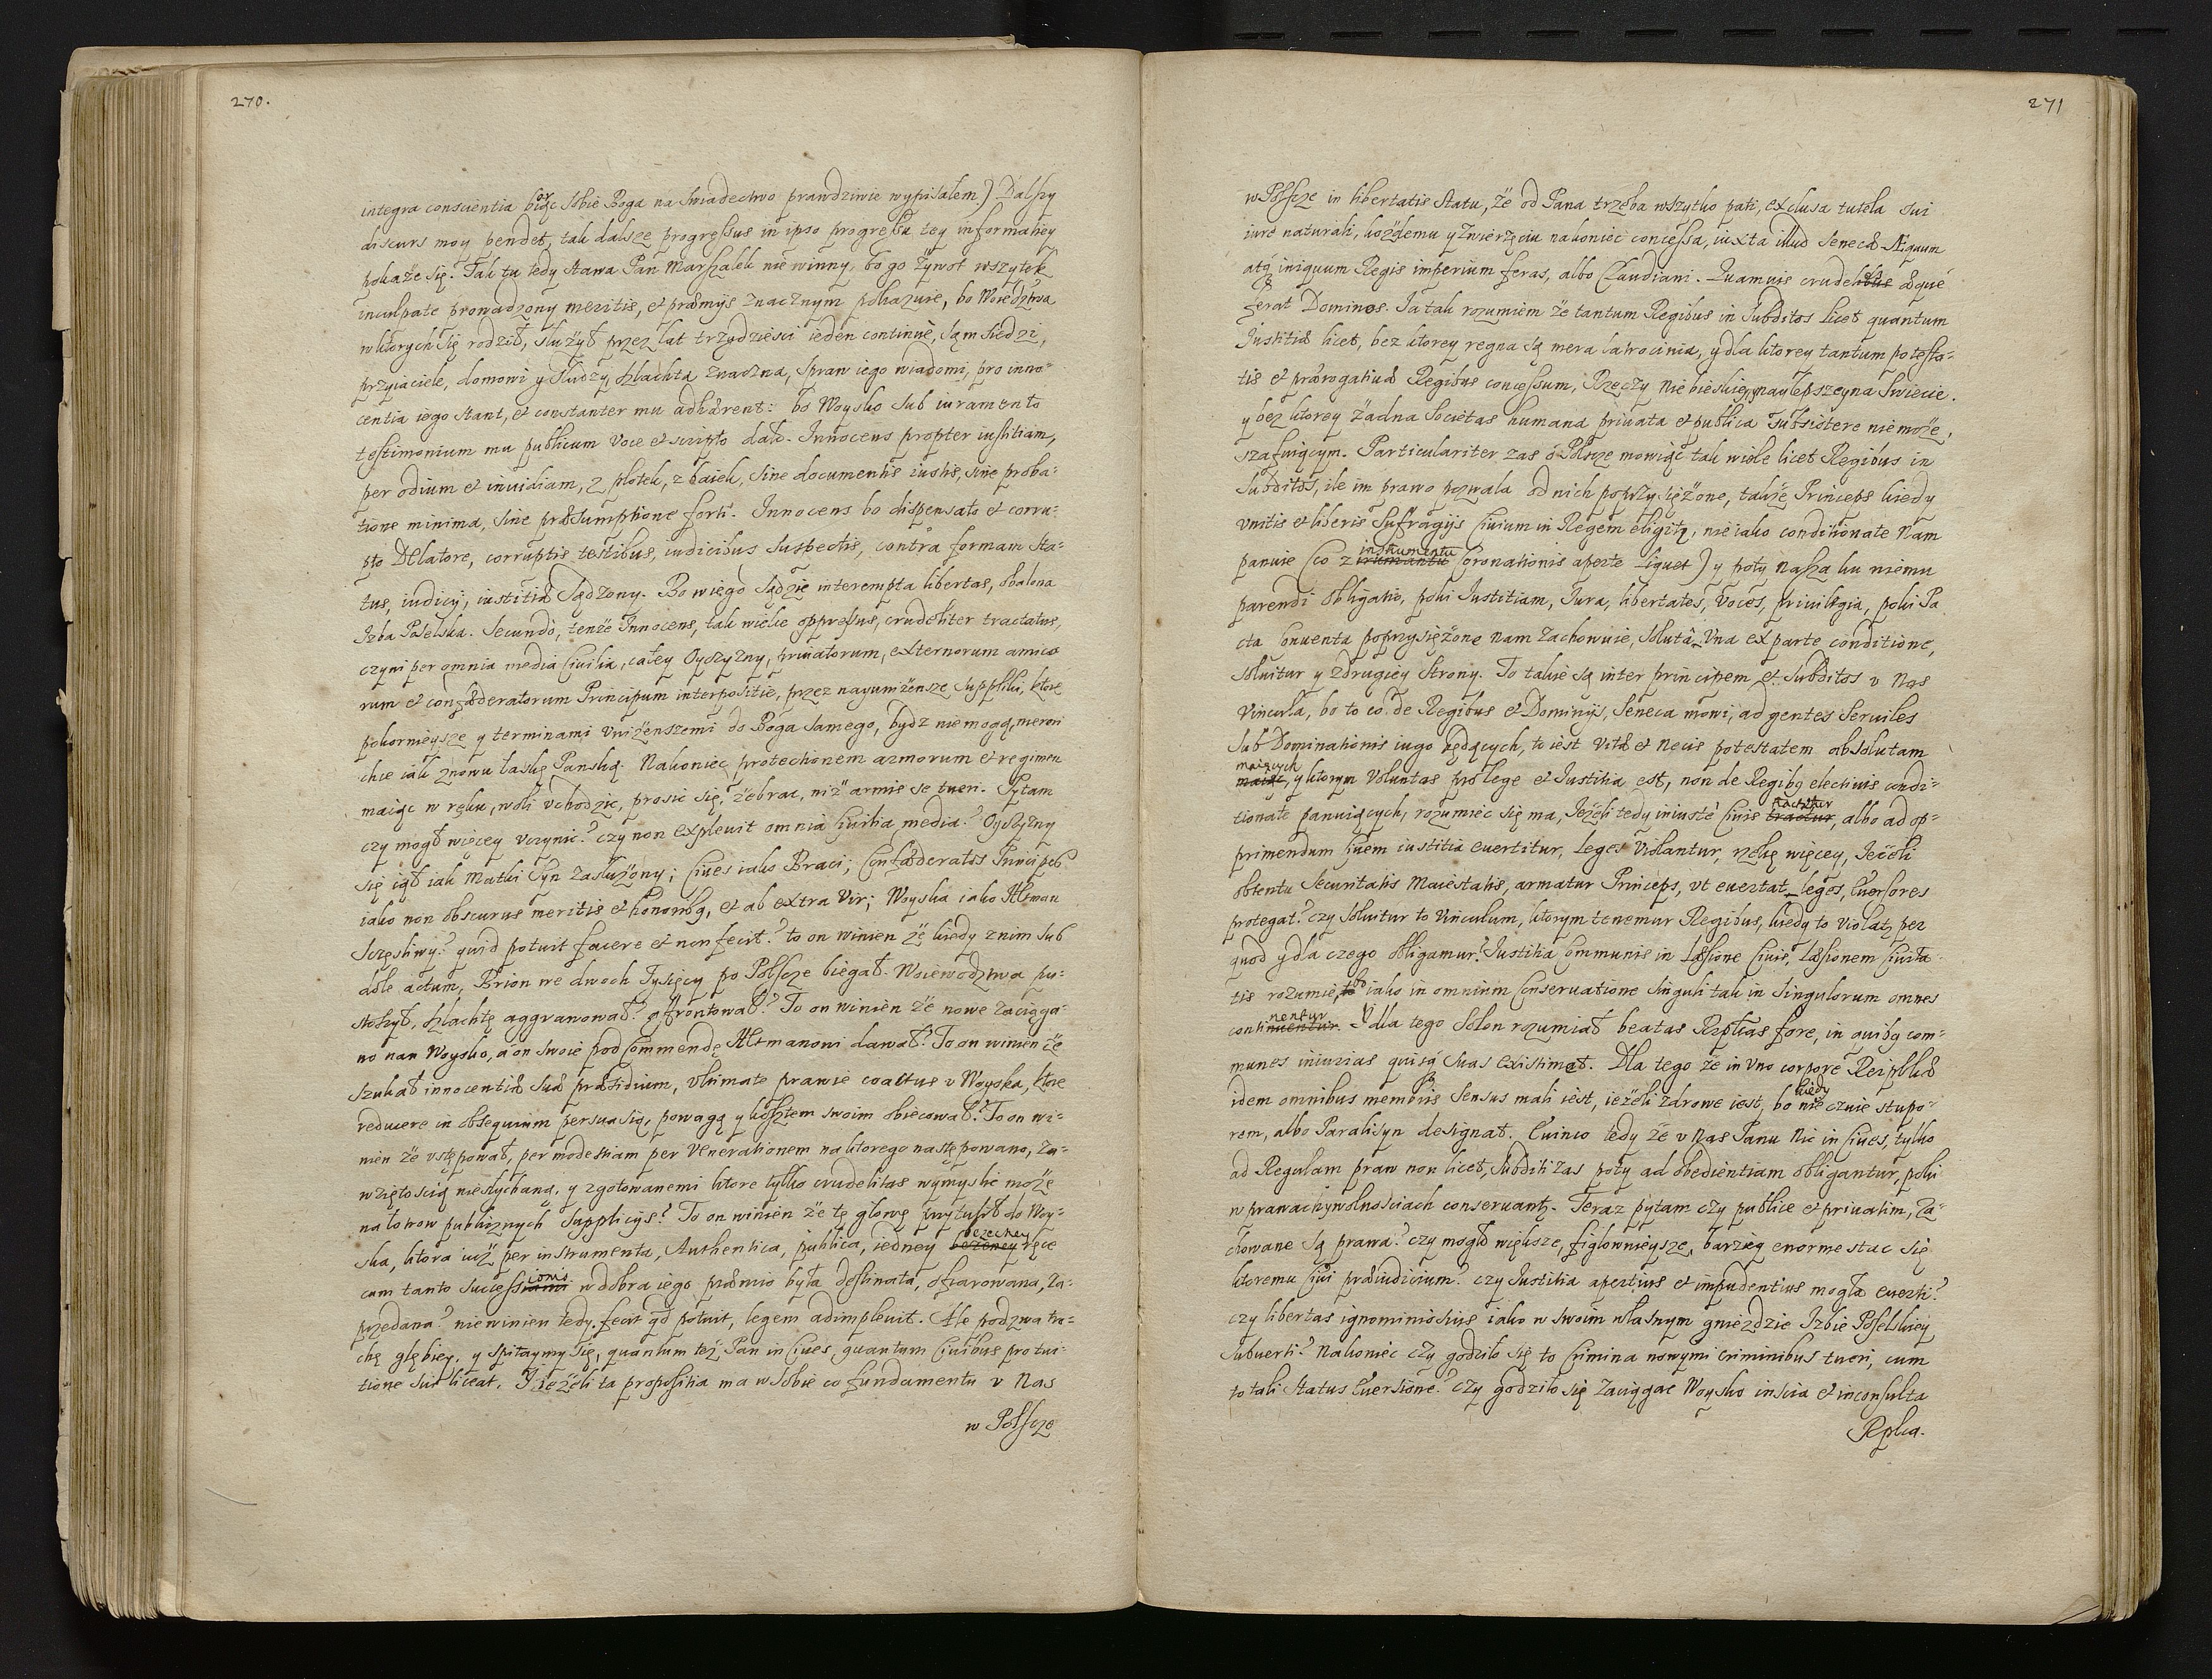 270.
integra conscientia biorąc sobie Boga na swiadectwo prawdziwie wypisałem) Dalszy
discurs moy pendet, tak dalsze progressus in ipso progressu tey informatiey
pokaże się. Tak tu tedy stawa Pan Marszałek niewinny, bo go żywot wszytek
inculpate prowadzony meritis, et præmijs znacznym pokazuie, bo Woiedztwa
w ktorych się rodził, służył przez lat trzydzieści ieden continuè, sąmsiedzi,
przyiaciele, domowi y słudzy, szlachta znaczna, spraw iego wiadomi, pro inno=
centia iego stant, et constanter mu adhærent: bo Woysko sub iuramento
testimonium mu publicum voce et scripto dało. Innocens propter iustitiam,
per odium et inuidiam, z plotek, z baiek, sine documentis iustis, sine proba=
tione minima, sine præsumptione forti. Innocens bo dispensato et corru=
pto Delatore, corruptis testibus, iudicibus suspectis, contra formam sta=
tus, iudicij, iustitiæ sądzony. Bo w iego sądzie interempta libertas, obalona
Izba Poselska. Secundò, tenże Innocens, tak wielce oppressus, crudeliter tractatus,
czyni per omnia media Ciuilia, całey Oyczyzny, priuatorum, externorum amico
rum et confæderatorum Principum interpositie, przez nayuniżensze suppliki, ktore
pokornieysze y terminami vniżenszemi do Boga samego, bydz nie mogą, mereri
chce iak znowu łaskę Panską. Nakoniec protectionem armorum et regimen
maiąc w ręku, woli vchodzic, prosic się, żebrac, niż armis se tueri. Pytam
czy mogł więcey vczynic? czy non expleuit omnia Ciuilia media? Oyczyzny
się iął iak Matki Syn zasłużony; Ciues iako Braci; Confæderatos Principes
iako non obscurus meritis et honoribꝫ, et ab extra Vir; Woyska iako Hetman
Szczęsliwy? quid potuit facere et non fecit? to on winien że kiedy znim sub
dole actum, Brion we dwoch Tysięcy po Polszcze biegał. Woiewodztwa pu=
stoszył, szlachtę aggrawował? affrontował? To on winien że nowe zaciąga=
no nan Woysko, á on swoie pod Commendę Hetmanowi dawał? To on winien że
szukał innocentiæ suæ præsidium, vltimate prawie coactus v Woyska, ktore
reducere in obsequium persuasią, powagą y kosztem swoim obiecował? To on wi=
nien że vstępował, per modestiam per Venerationem na ktorego następowano, za=
wziętoscią niesłychaną, y zgotowanemi ktore tylko crudelitas wymyslic może
na łotrow publicznych supplicijs? To on winien że tę głowę przytulił do Woy=
ska, ktora iuż per instrumenta, Authentica, publica, iedney bezecney bezeney ręce
cum tanto successionis iami w dobra iego præmio była destinata, ofiarowana, za=
przedana? nie winien tedy, fecit qd potuit, legem adimpleuit. Ale podzwa tro=
chę głębiey, y spitaymy się, quantum też Pan in Ciues, quantum Ciuibus pro tui=
tione sui liceat. Y ieżeli ta propositia ma w sobie co fundamentu v Nas
w Polszcze
271
w Polszcze in libertatis statu, że od Pana trzeba wszytko pati, exclusa tutela sui
iure naturali, każdemu y zwierzęciu nakoniec concessa, iuxta illud Senecæ Æquum
atqꝫ iniquum Regis imperium feras, albo Claudiani. Quamuis crudeles ibus æque
ferat Dominos. Ia tak rozumiem że tantum Regibus in Subditos licet quantum
Iustitiæ licet, bez ktorey regna są mera latrocinia, y dla ktorey tantum potesta=
tis et prærogatiuæ Regibus concessum, Rzeczy niebieskiey, naylepszey na swiecie.
y bez ktorey żadna Societas humana priuata et publica subsistere nie może,
szafuiącym. Particulariter zas o Polszcze mowiąc tak wiele licet Regibus in
Subditos, ile im prawo pozwala od nich poprzysiężone, takżę Princeps kiedy
vnitis et liberis Sufragijs Ciuium in Regem eligitꝫ, nie iako conditionate Nam
panuie (co z instrumentu irumantu Coronationis aperte liquet) y poty nasza ku niemu
parendi obligatio, poki Iustitiam, Iura, libertates, Voces, priuilegia, poki Pa
cta Conuenta poprzysiężone nam zachowuie, soluta vna ex parte conditione,
soluitur y zdrugiey strony. To takie są inter principem et Subditos v Nas
vincula, bo to co de Regibus et Dominijs, Seneca mowi, ad gentes seruiles
sub Dominationis iugo będących, to iest vitæ et necis potestatem absolutam
maiących maiąc, y ktorym Voluntas pro lege et Iustitia est, non de Regibꝫ electiuis condi=
tionate panuiących, rozumiec się ma, Ieżeli tedy iniuste Ciuis tractatur tractur, albo ad op=
primendum Ciuem iustitia euertitur, Leges Violantur, rzekę więcey, Ieżeli
obtentu Securitatis Maiestatis, armatur Princeps, vt euertat leges, Euersores
protegat? czy soluitur to vinculum, ktorym tenemur Regibus, kiedy to Violatꝫ per
quod y dla czego obligamur? Iustitia Communis in læsione Ciuis, læsionem Ciuita
tis rozumie, to bo iako in omnium Conseruatione singuli tak in singulorum omnes
continentur nuentur. Y dla tego Solon rozumiał beatas Rzptias fore, in quibꝫ com=
munes iniurias quisqꝫ suas existimat. Dla tego że in vno corpore Reipblicæ
idem omnibus membris sensus mali iest, ieżeli zdrowe iest, bo kiedy nie czuie stupo=
rem, albo Paralisyn designat. Euinco tedy że v Nas Panu nic in Ciues, tylko
ad Regulam praw non licet, Subditi zas poty ad obedientiam obligantur, poki
w prawach y wolnosciach conseruantꝫ. Teraz pytam czy publice et priuatim, za=
chowane są prawa? czy mogło większe, figlownieysze, barziey enorme stac się
ktoremu Ciui præiudicium? czy Iustitia apertius et impudentius mogła euerti?
czy libertas ignominiosius iako w swoim własnym gnieździe Izbie Poselskiey
Subuerti? Nakoniec czy godziło się to Crimina nowymi criminibus tueri, cum
totali status Euersione? czy godziło się zaciągac Woysko inscia et inconsulta
Rzplca.